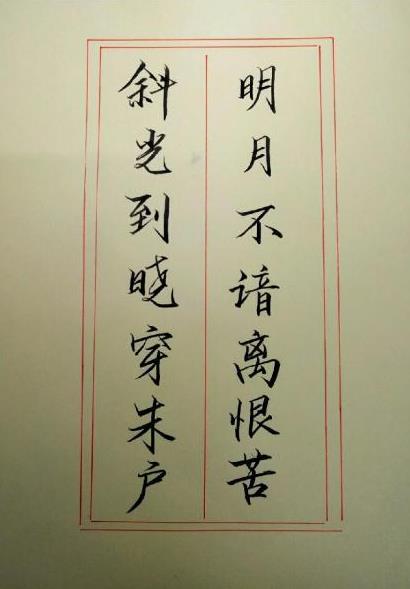 明月不谙离恨苦
斜光到晓穿朱户